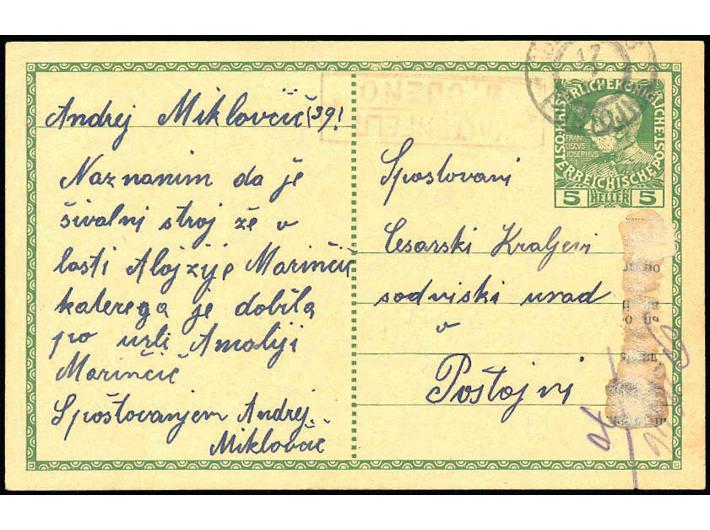 Andrej Miklovčič (39!
Naznanim da je
šivalni stroj že v
lasti Alojzije Marinčič
katerega je dobila
po urli Amaliji
Marinčič
Spoštovanjem Andrej
Miklovčič
Spostovani
Cesarski Kraljevi
sodniski urad
v
Poštojni
17
KAISERLICHE KÖNIGLICHE
FRAN
CISCVS
IOSEPHVS
ÖSTERREICHISCHE POST
5 HELLER 5